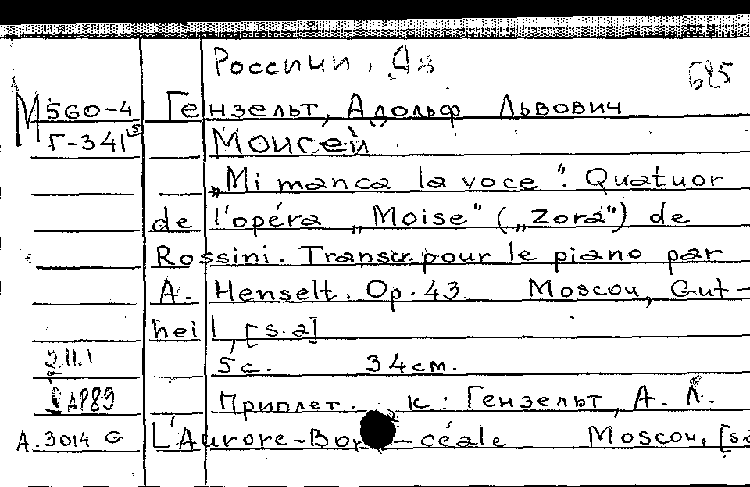 Россини, Дж
685
М560-4 Гензельт, Адольф Львович
Г-341 "Моисей"
„Mi manca la voce". Quatuor
de l'opéra „Moise" („Zora") de
Rossini. Transcr. pour le piano par
A. Henselt. Op. 43 Moscou, Gut-
heil, [s.a]
5с. 34см.
Приплет. к: Гензельт, А. Л.
А.3014 G L'Aurore-Bor-céale Moscou, [s.a